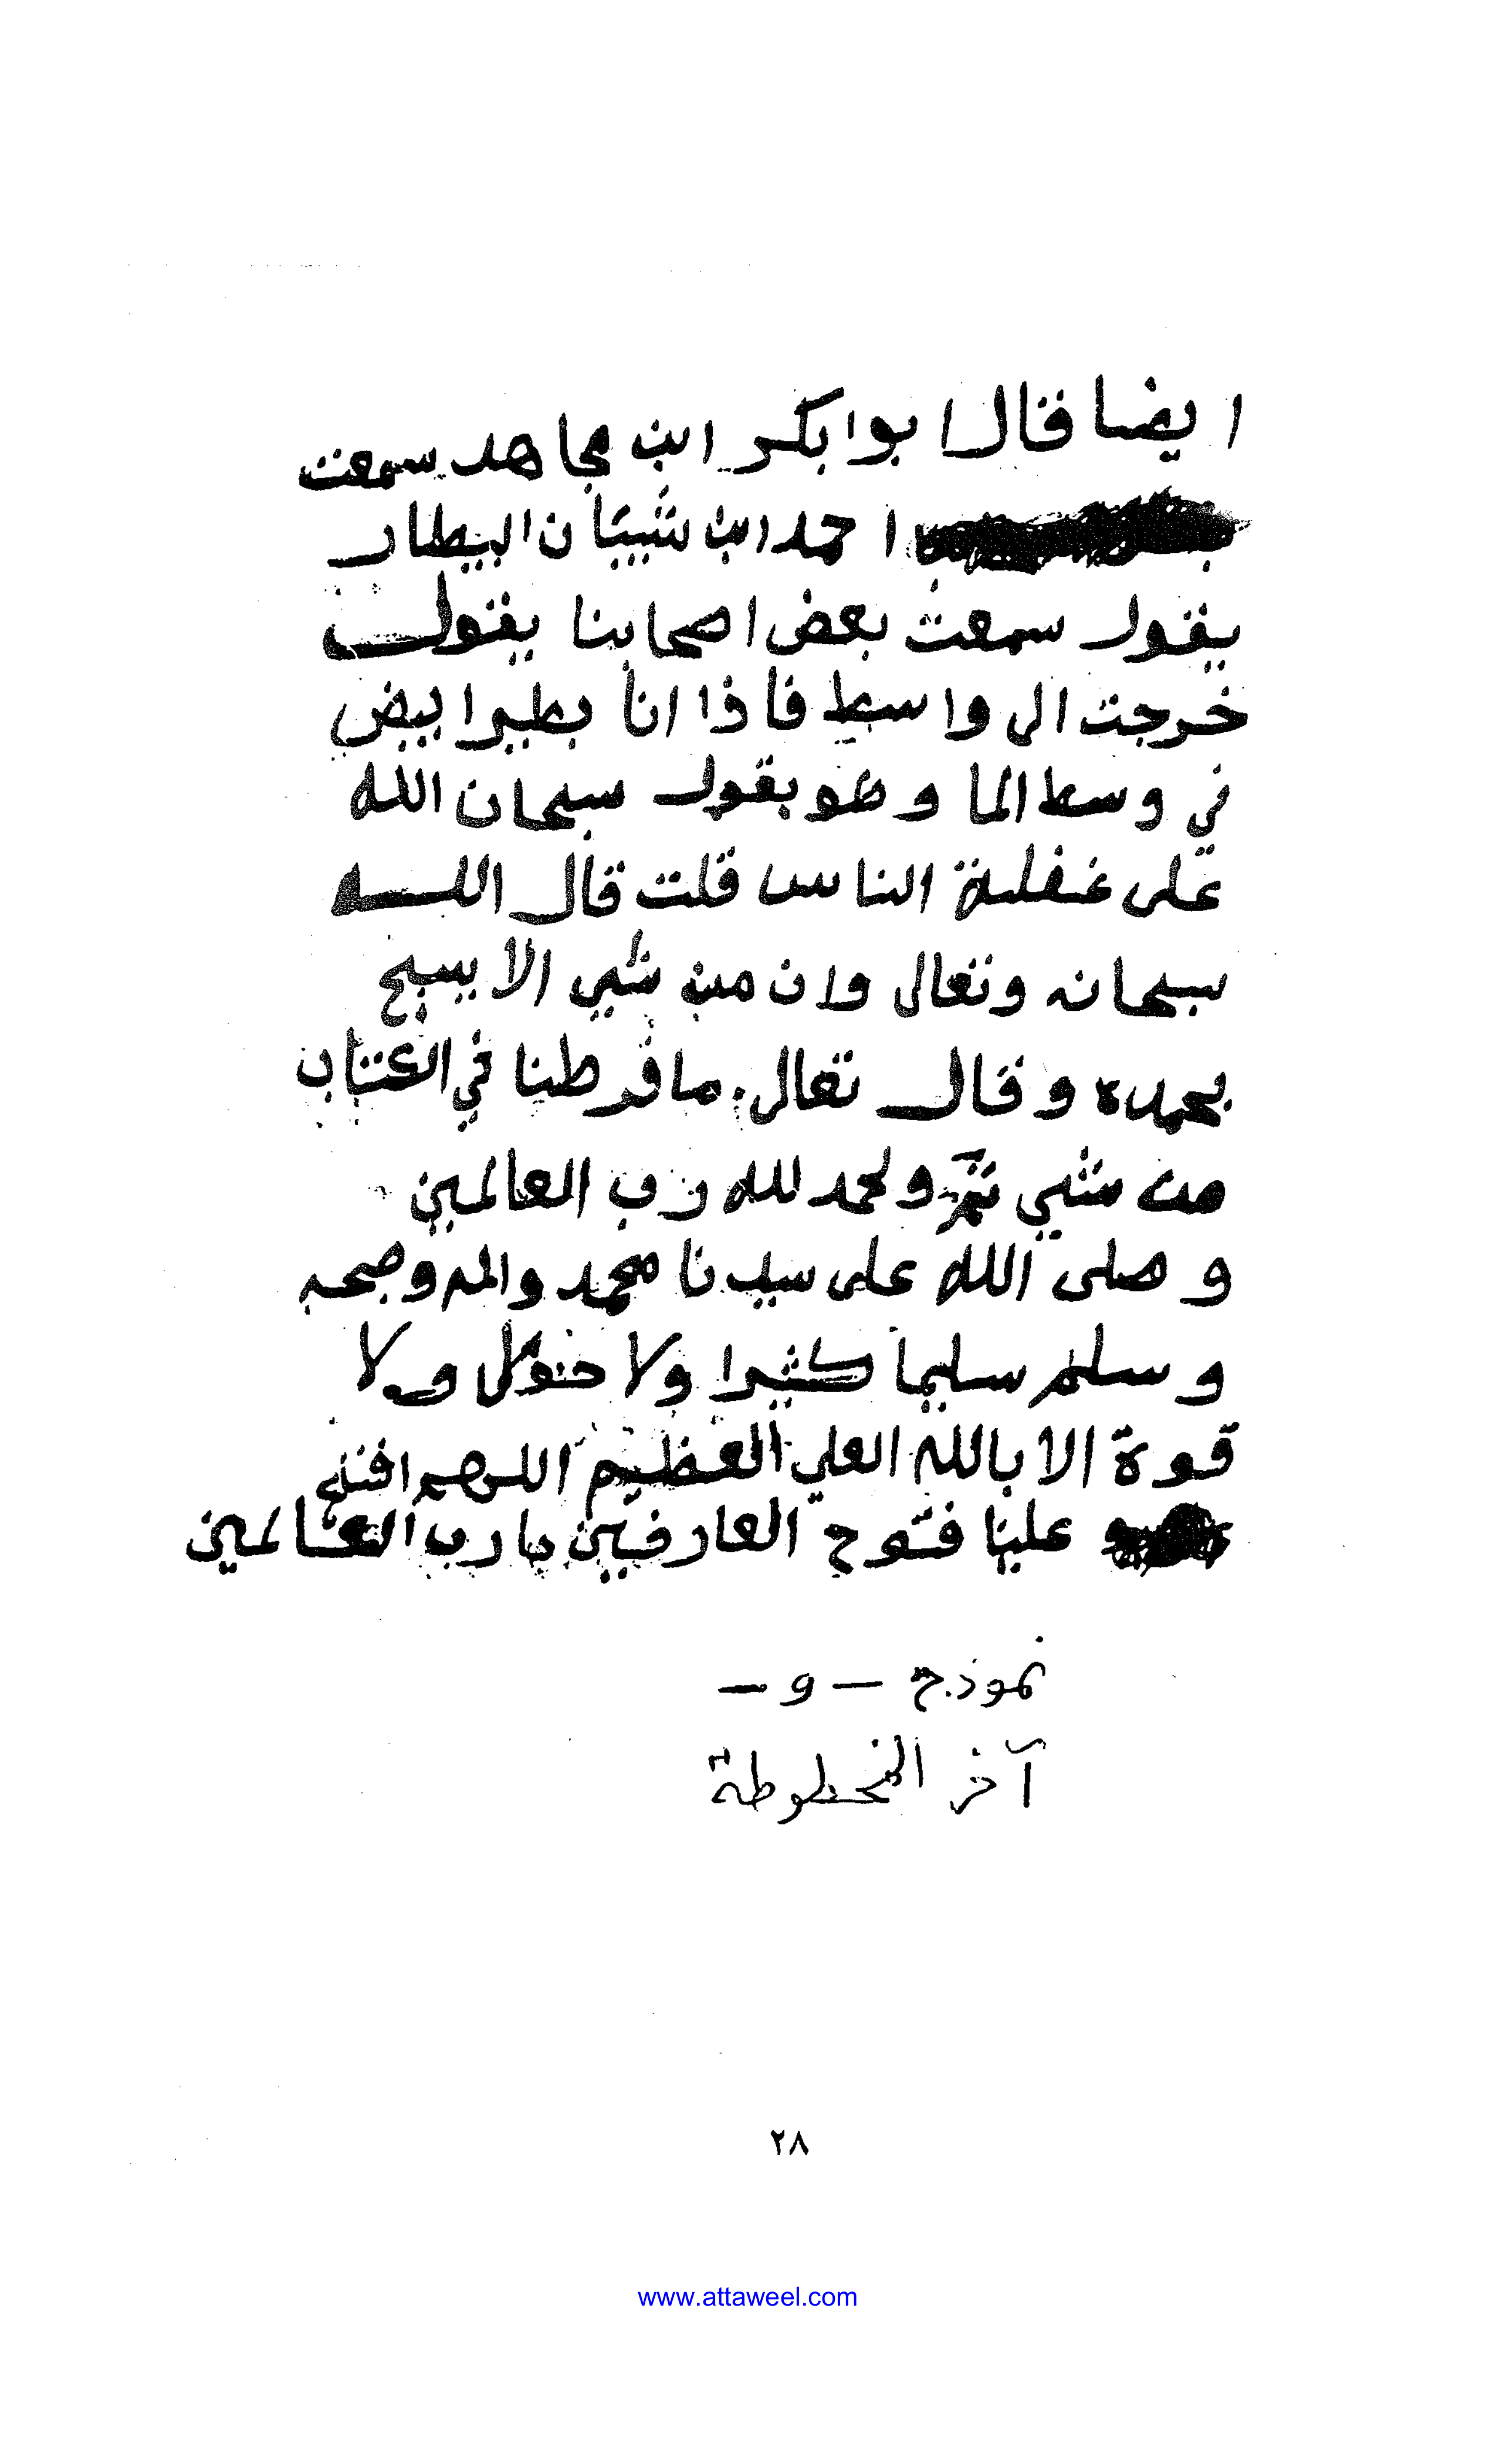 ايضا قال ابوابكر ابن مجاهد سمعت
احمد ابن شيبان البيطار
يقول سمعت بعض اصحابنا يقول
خرجت الى واسط فاذا انا بطير ابيض
في وسط الما وهو يقول سبحان الله
على غفلة الناس قلت قال الله
سبحانه وتعالى وان من شي الا يسبح
بحمده وقال تعالى ما فرطنا في الكتاب
من شي تم ولحمد لله رب العالمين
وصلى الله على سيدنا محمد واله وصحبه
وسلم سليما كثيرا ولا حول ولا
قوة الا بالله العلي العظيم اللهم افتح
علينا فتوح العارفين يا رب العالمين
نموذج – و –
آخر المخطوطة
٢٨
www.attaweel.com